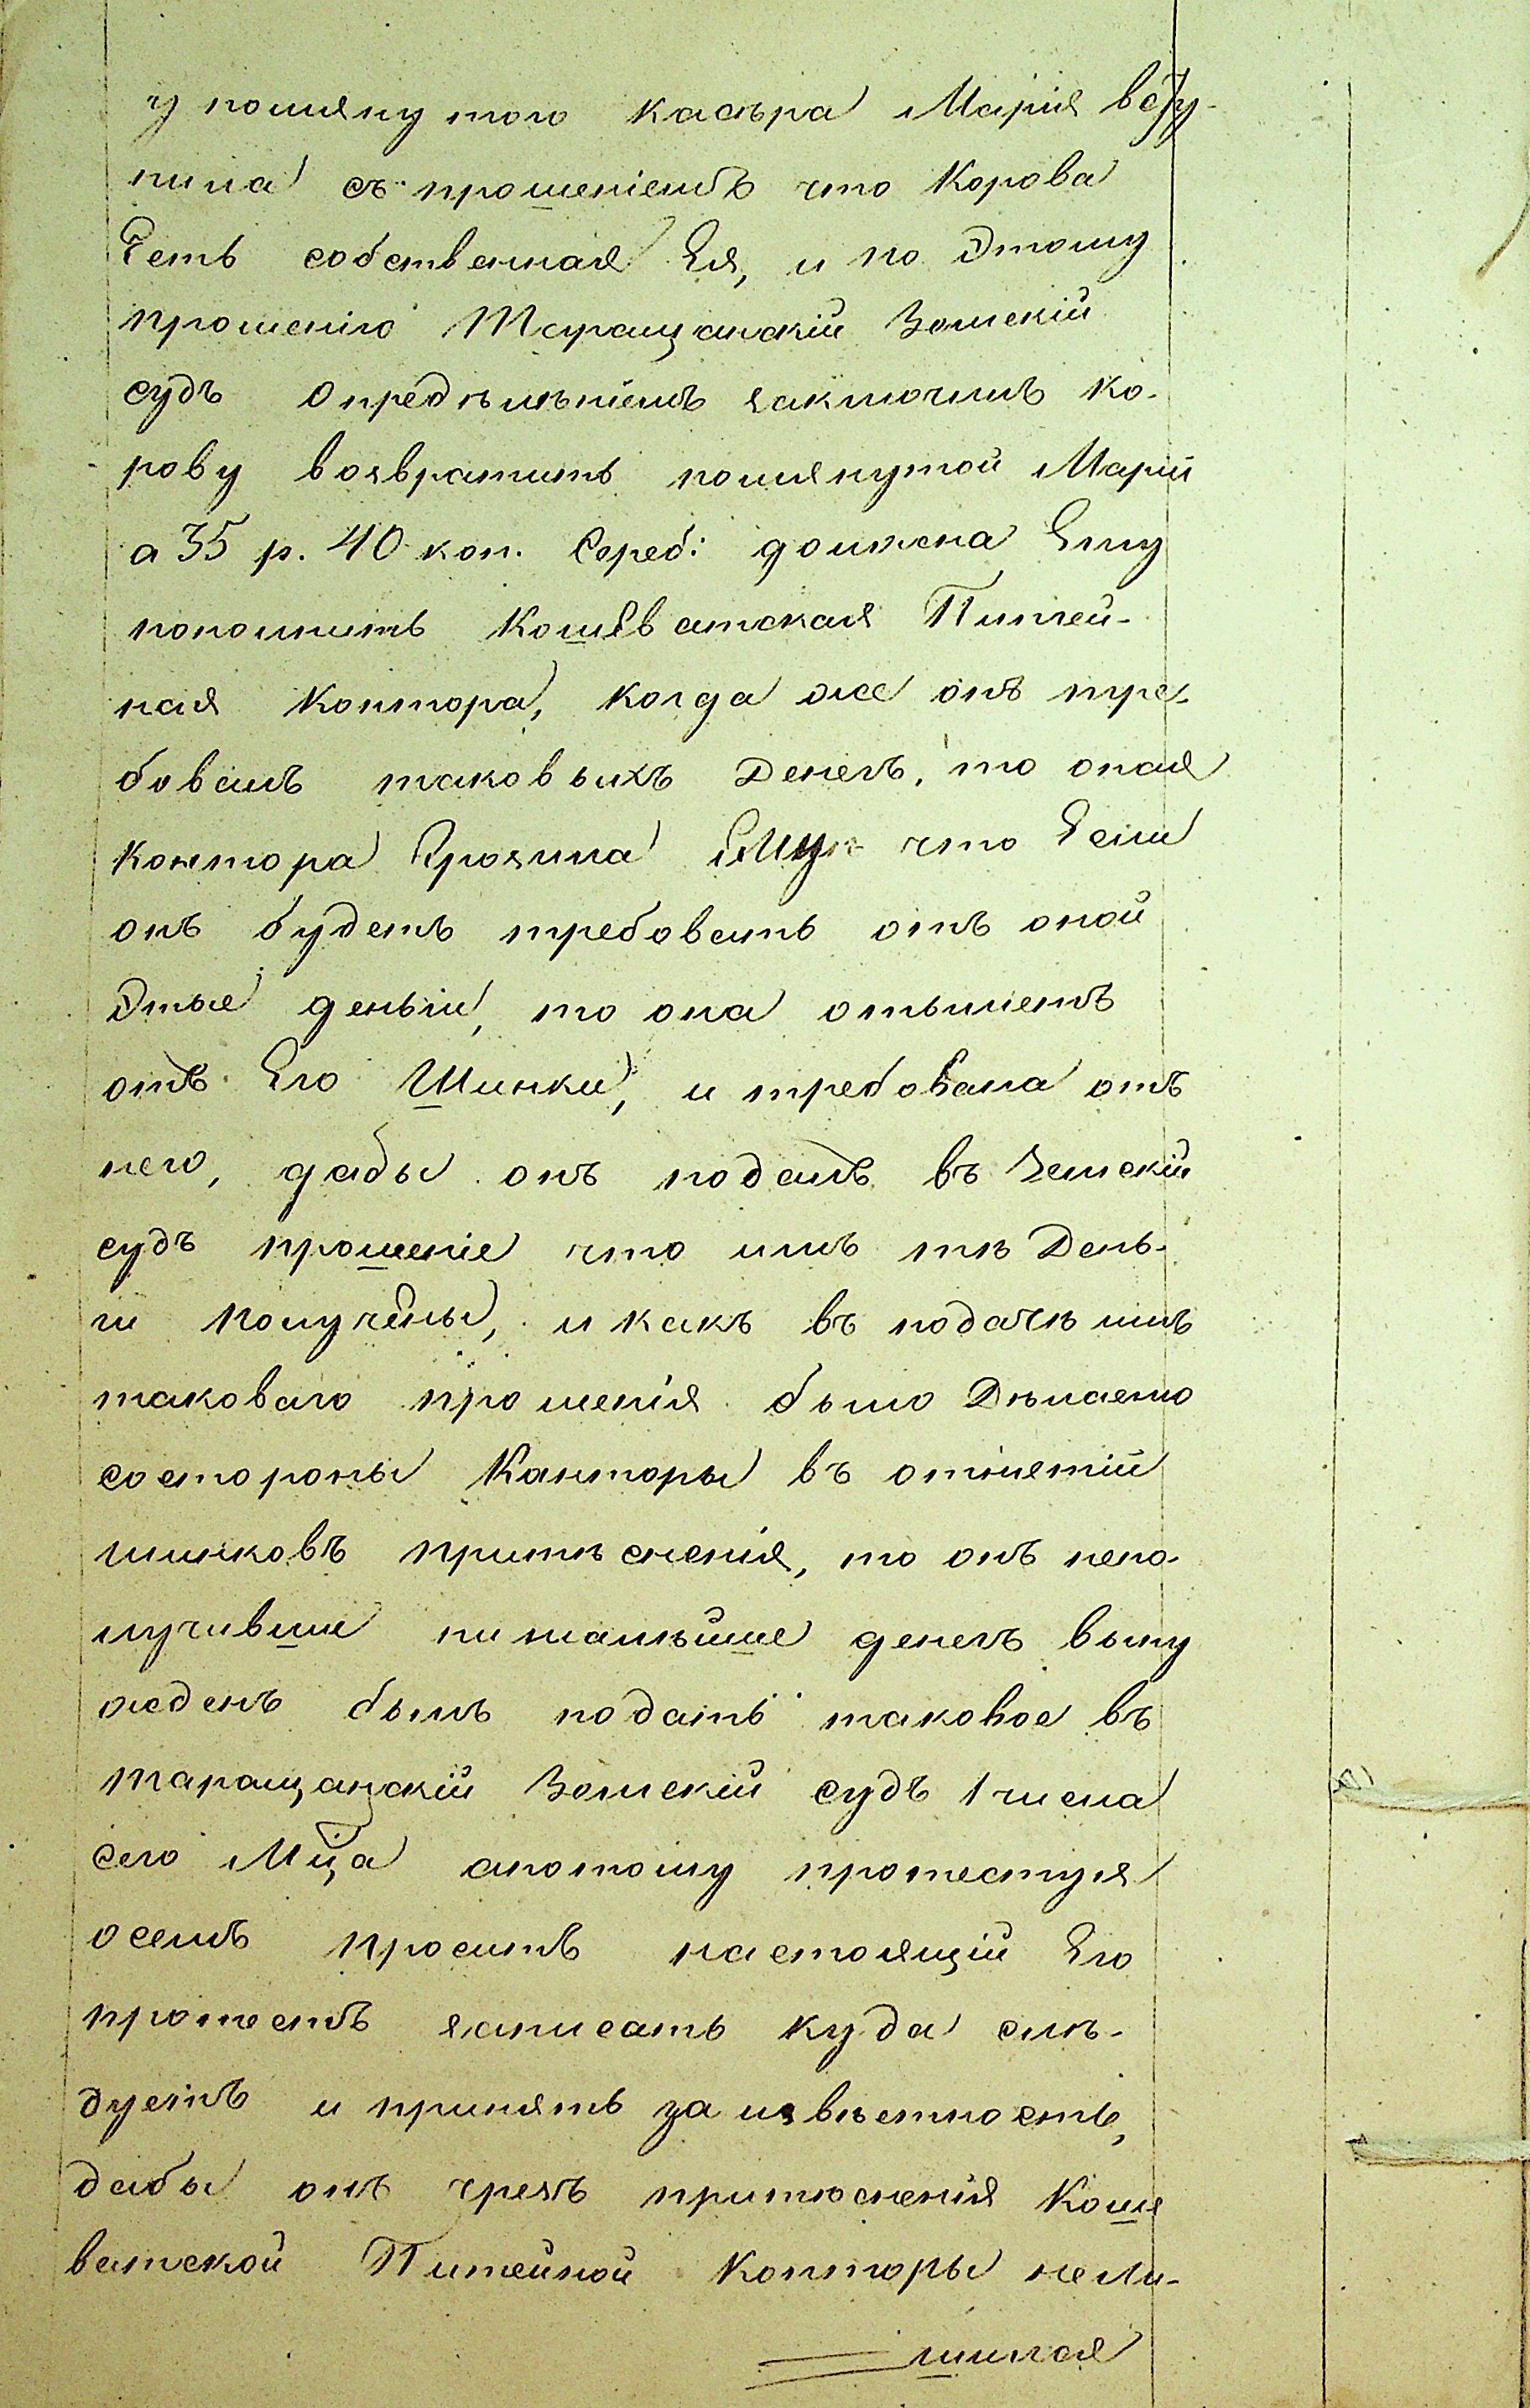 у помянутого касъра Марія всту-
пила съ прошеніемъ что корова
Есть собственная Ея, и по Этому
прошенію Таращанскій Земскій
судъ опредѣлѣніемъ заключилъ ко-
рову возвратить помянутой Маріи
а 35 р. 40 коп. Сереб: должна Ему
пополнить Кошеватская Питей-
ная Контора, когда же онъ тре-
бовалъ таковыхъ Денегъ, то оная
Контора Грозила Ему что Если
онъ будетъ требовать отъ оной
Этые деньги, то она отыметъ
отъ Его Шинки, и требовала отъ
него, дабы онъ подалъ въ Земскій
судъ прошеніе что имъ тѣ День-
ги Получены, и какъ въ подачѣ имъ
таковаго прошенія было Дѣлаемо
состороны Канторы въ отнятіи
шинковъ притѣсненія, то онъ непо-
лучивши нималѣйше денегъ выну
жденъ былъ подать таковое въ
Таращанскій Земскій судъ 1 числа
сего Мца апотому протестуя
осемъ проситъ настоящій Его
протестъ записать куда слѣ-
дуетъ и принять за извѣстность,
дабы онъ чрезъ притѣсненія Коше
ватской Питейной Конторы нели-
шился